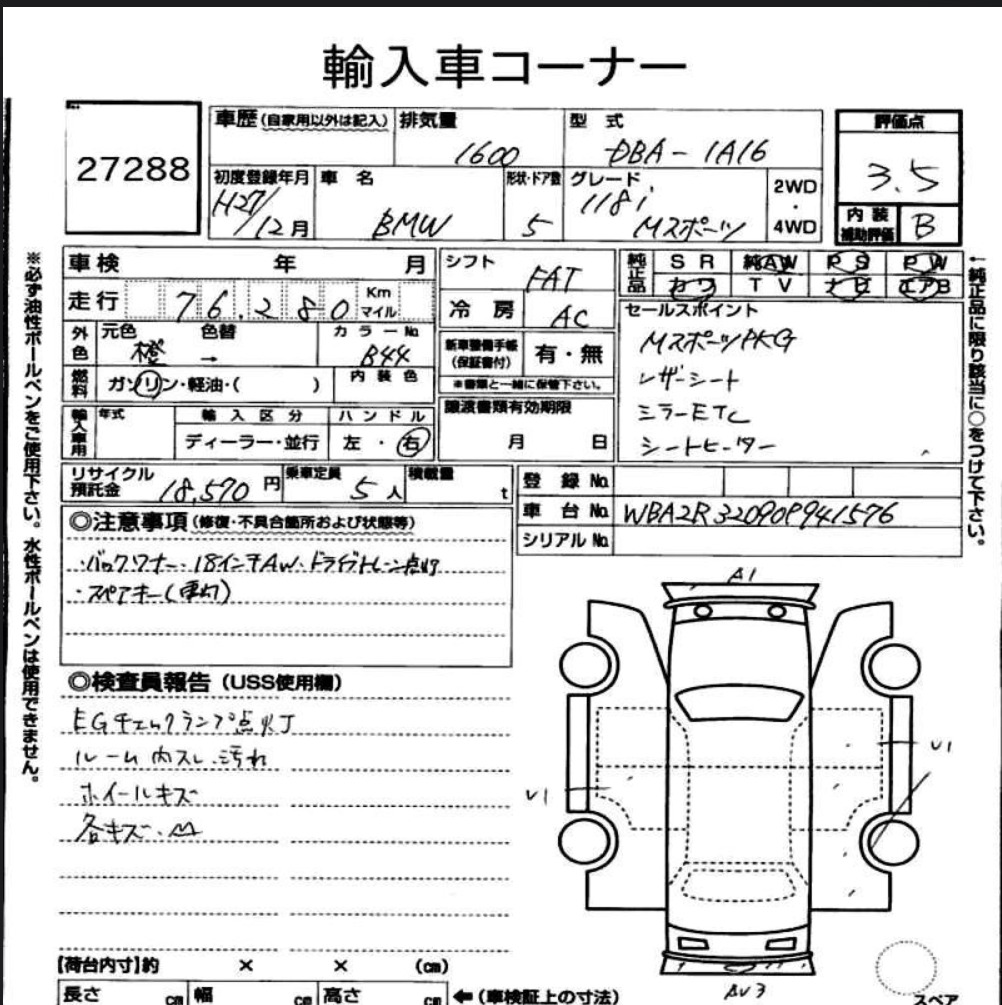 輸入車コーナー
27288
車歴(自家用以外は記入) 排気量 1600 型式 DBA-1A16
初度登録年月 H27/12月 車名 BMW 形状・ドア数 5 グレード 118i Mスポーツ 2WD・4WD
評価点 3.5
内装補助評価 B
車検 年 月
走行 76,280 Km マイル
外色 元色 橙 色替 → カラーNo. B44
燃料 ガソリン・軽油・( ) 内装色
輸入車用 年式 輸入区分 ディーラー・並行 ハンドル 左・右
シフト FAT
冷房 AC
新車整備手帳(保証書付) 有・無
※書類と一緒に保管下さい。
譲渡書類有効期限
月 日
純正品 SR 純AW PS PW
カワ TV ナビ エアB
セールスポイント
MスポーツPKG
レザーシート
ミラーETC
シートヒーター
リサイクル預託金 18,570円 乗車定員 5人 積載量 t
登録No.
車台No. WBA2R320909941576
シリアルNo.
◎注意事項(修復・不具合箇所および状態等)
・バックソナー・18インチAW・ドライブトレーン点灯
・スペアキー(車灯)
◎検査員報告(USS使用欄)
EGチェックランプ点灯
ルーム内スレ・汚れ
ホイールキズ
各キズ・凹
A1
U1
U1
AU3
スペア
【荷台内寸】約 × × (cm)
長さ cm 幅 cm 高さ cm ←(車検証上の寸法)
※必ず油性ボールペンをご使用下さい。水性ボールペンは使用できません。
←純正品に限り該当に○をつけて下さい。